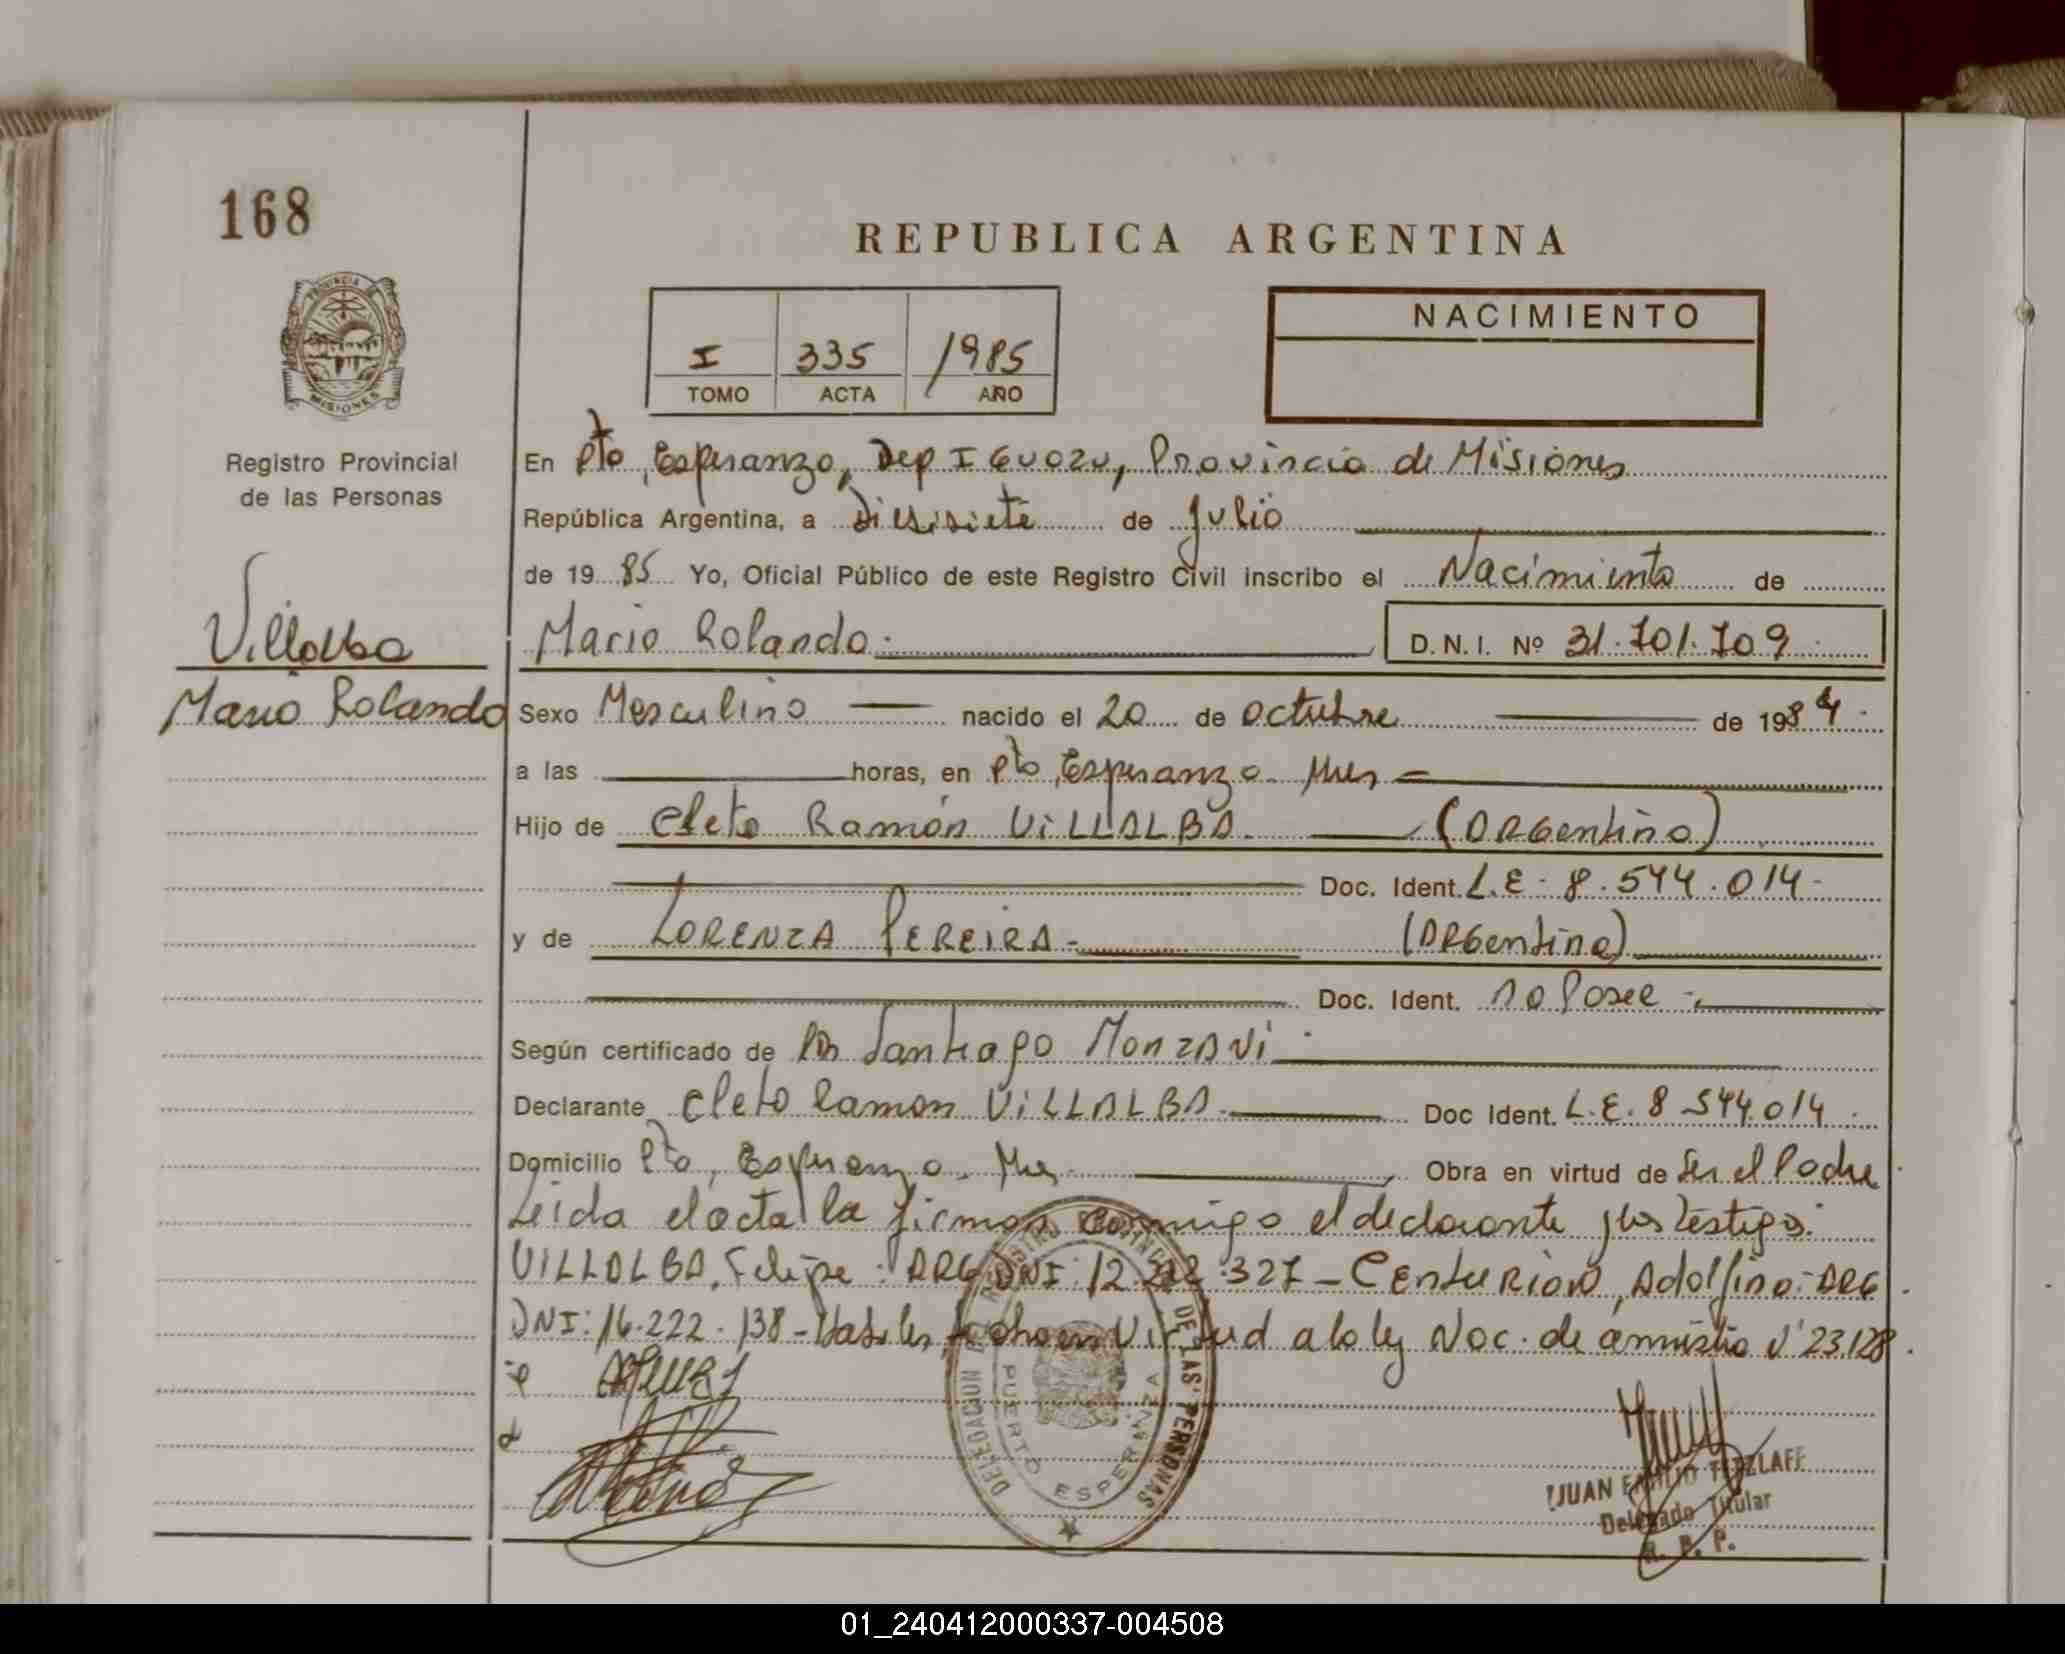 168
REPUBLICA ARGENTINA
PROVINCIA DE
MISIONES
NACIMIENTO
I 335 1985
TOMO ACTA AÑO
Registro Provincial
de las Personas
Villalba
Mario Rolando
En Pto, Esperanza, Dep IGUAZU, Provincia de Misiones
República Argentina, a Diesisiete de Julio
de 1985 Yo, Oficial Público de este Registro Civil inscribo el Nacimiento de
Mario Rolando. D.N.I. Nº 31.701.709
Sexo Masculino nacido el 20 de octubre de 1984.
a las horas, en Pto, Esperanza. Mnes
Hijo de Cleto Ramón VILLALBA. (ARGentino)
Doc. Ident. L.E. 8.544.014.
y de LORENZA PEREIRA. (ARGentina)
Doc. Ident. no Posee.
Según certificado de Santiago MONZANI.
Declarante Cleto Ramon VILLALBA. Doc Ident. L.E. 8.544.014.
Domicilio Pto, Esperanza. Mnes. Obra en virtud de Ser el Padre
Leida el acta la firman conmigo el declarante y los testigos:
VILLALBA, Felipe: ARG DNI: 12. .327 - CENTURION, Adolfino: ARG
DNI: 16.222.138 - en Virtud a la ley Nac. de amnistia Nº 23.128.
DELEGACION REGISTRO PROVINCIAL DE LAS PERSONAS
PUERTO ESPERANZA
JUAN EMILIO TETZLAFF
Delegado Titular
R. P. P.
01_240412000337-004508